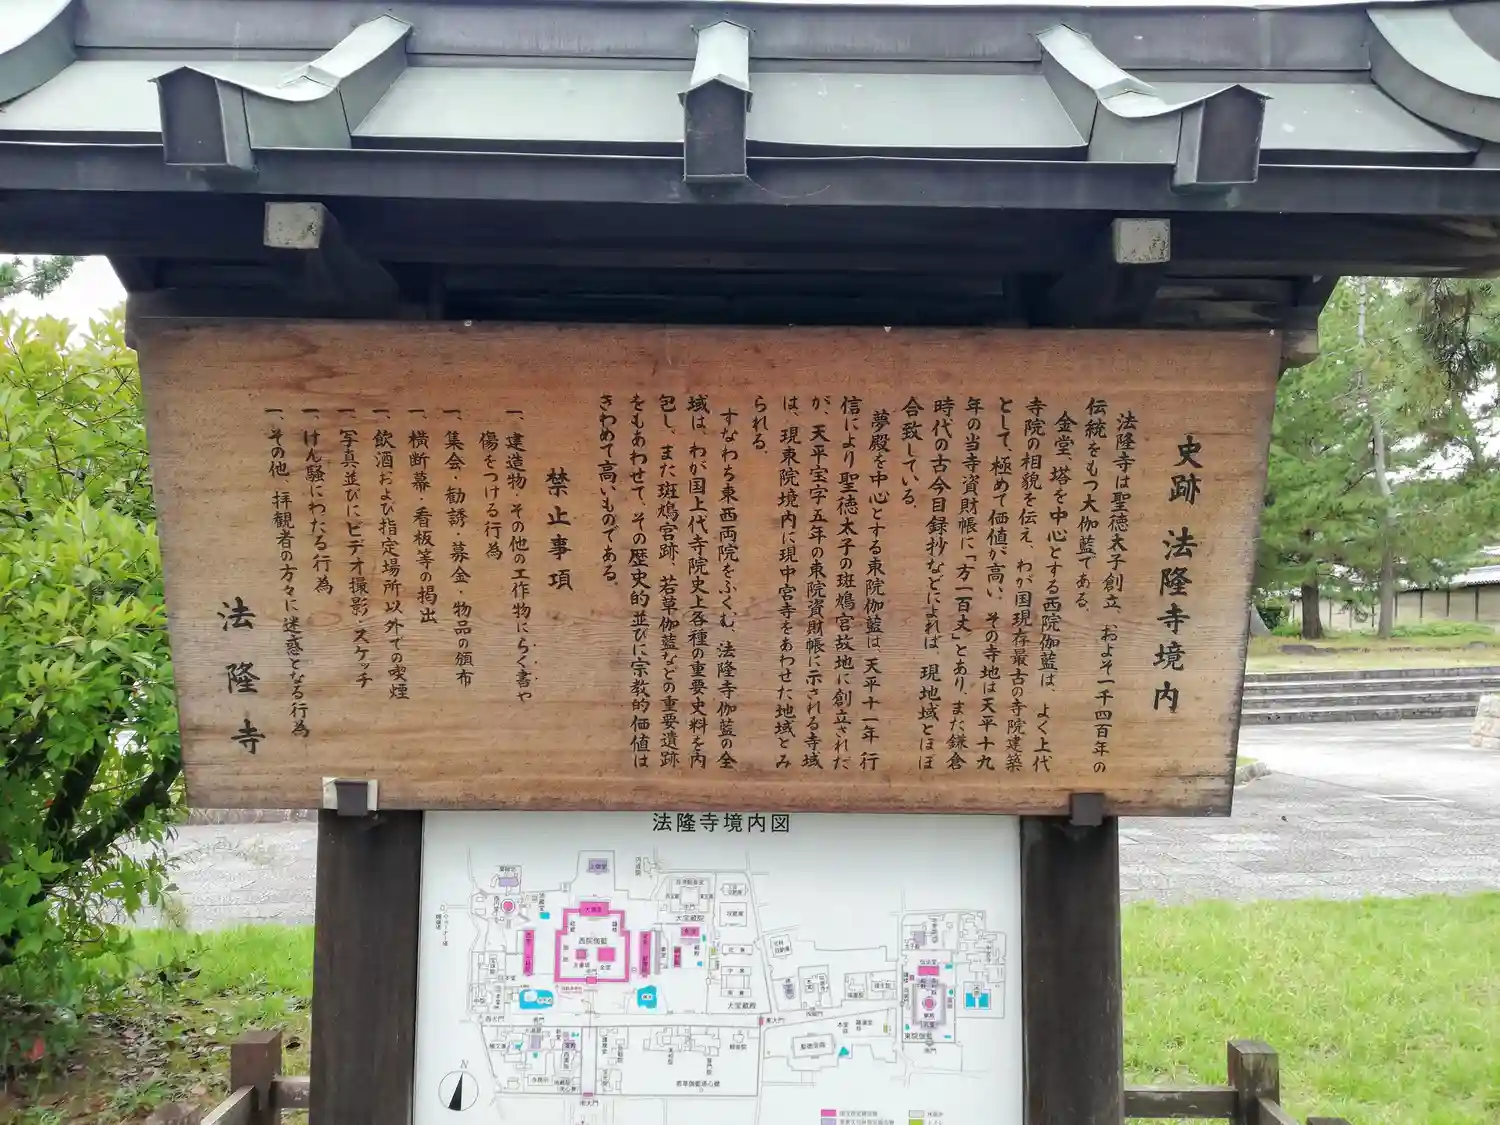 史跡 法隆寺境内
法隆寺は聖徳太子創立、およそ一千四百年の
伝統をもつ大伽藍である。
金堂、塔を中心とする西院伽藍は、よく上代
寺院の相貌を伝え、わが国現存最古の寺院建築
として、極めて価値が高い、その寺地は天平十九
年の当寺資財帳に「方一百丈」とあり、また鎌倉
時代の古今目録抄などによれば、現地域とほぼ
合致している。
夢殿を中心とする東院伽藍は、天平十一年 行
信により聖徳太子の斑鳩宮故地に創立された
が、天平宝字五年の東院資財帳に示される寺域
は、現東院境内に現中宮寺をあわせた地域とみ
られる。
すなわち東西両院をふくむ、法隆寺伽藍の全
域は、わが国上代寺院史上各種の重要史料を内
包し、また斑鳩宮跡、若草伽藍などの重要遺跡
をもあわせて、その歴史的並びに宗教的価値は
きわめて高いものである。
禁止事項
一、建造物・その他の工作物にらく書や
傷をつける行為
一、集会・勧誘・募金・物品の頒布
一、横断幕・看板等の掲出
一、飲酒および指定場所以外での喫煙
一、写真並びにビデオ撮影・スケッチ
一、けん騒にわたる行為
一、その他、拝観者の方々に迷惑となる行為
法隆寺
法隆寺境内図
西院伽藍
金堂
大宝蔵院
大宝蔵殿
東大門
西大門
南大門
東院伽藍
夢殿
聖徳会館
若草伽藍
N